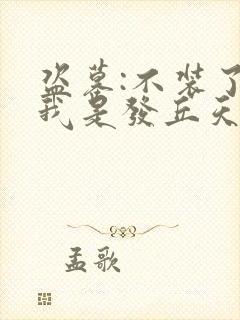 盗墓:不装了
我是發丘天
孟歌